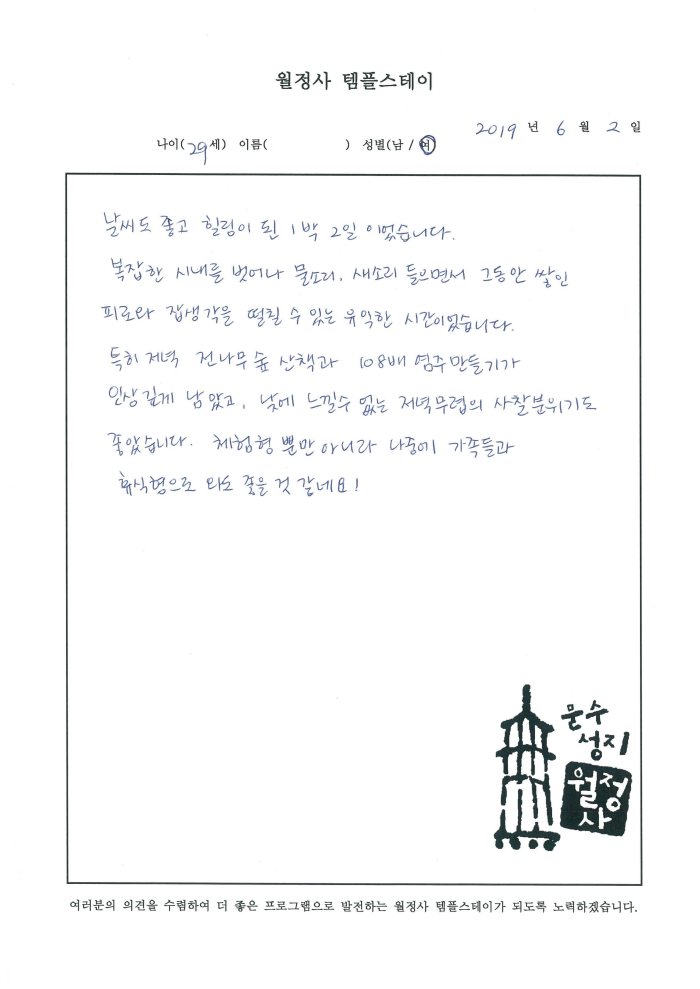 월정사 템플스테이
2019 년 6 월 2 일
나이( 29 세) 이름( ) 성별(남 / 여)
날씨도 좋고 힐링이 된 1박 2일 이었습니다.
복잡한 시내를 벗어나 물소리, 새소리 들으면서 그동안 쌓인
피로와 잡생각을 떨칠 수 있는 유익한 시간이었습니다.
특히 저녁 전나무 숲 산책과 108배 염주만들기가
인상 깊게 남았고, 낮에 느낄수 없는 저녁무렵의 사찰분위기도
좋았습니다. 체험형 뿐만 아니라 나중에 가족들과
휴식형으로 와도 좋을 것 같네요!
문수
성지
월정
사
여러분의 의견을 수렴하여 더 좋은 프로그램으로 발전하는 월정사 템플스테이가 되도록 노력하겠습니다.